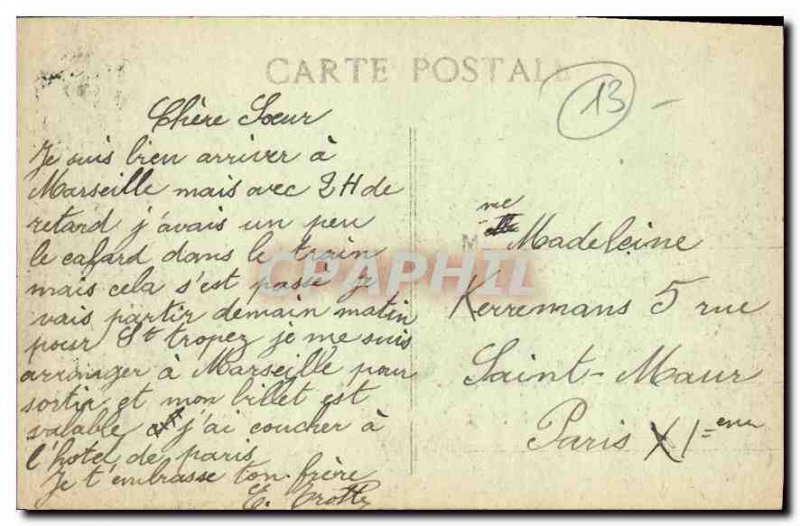 CARTE POSTALE
13
Chère Sœur
Je suis bien arriver à
Marseille mais avec 2H de
retard j'avais un peu
le cafard dans le train
mais cela s'est passé je
vais partir demain matin
pour St tropez je me suis
arrenger à Marseille pour
sortir et mon billet est
valable j'ai coucher à
l'hotel de paris
Je t'embrasse ton frère
E.
Mme Madeleine
Kerremans 5 rue
Saint-Maur
Paris XIeme
CPAPHIL